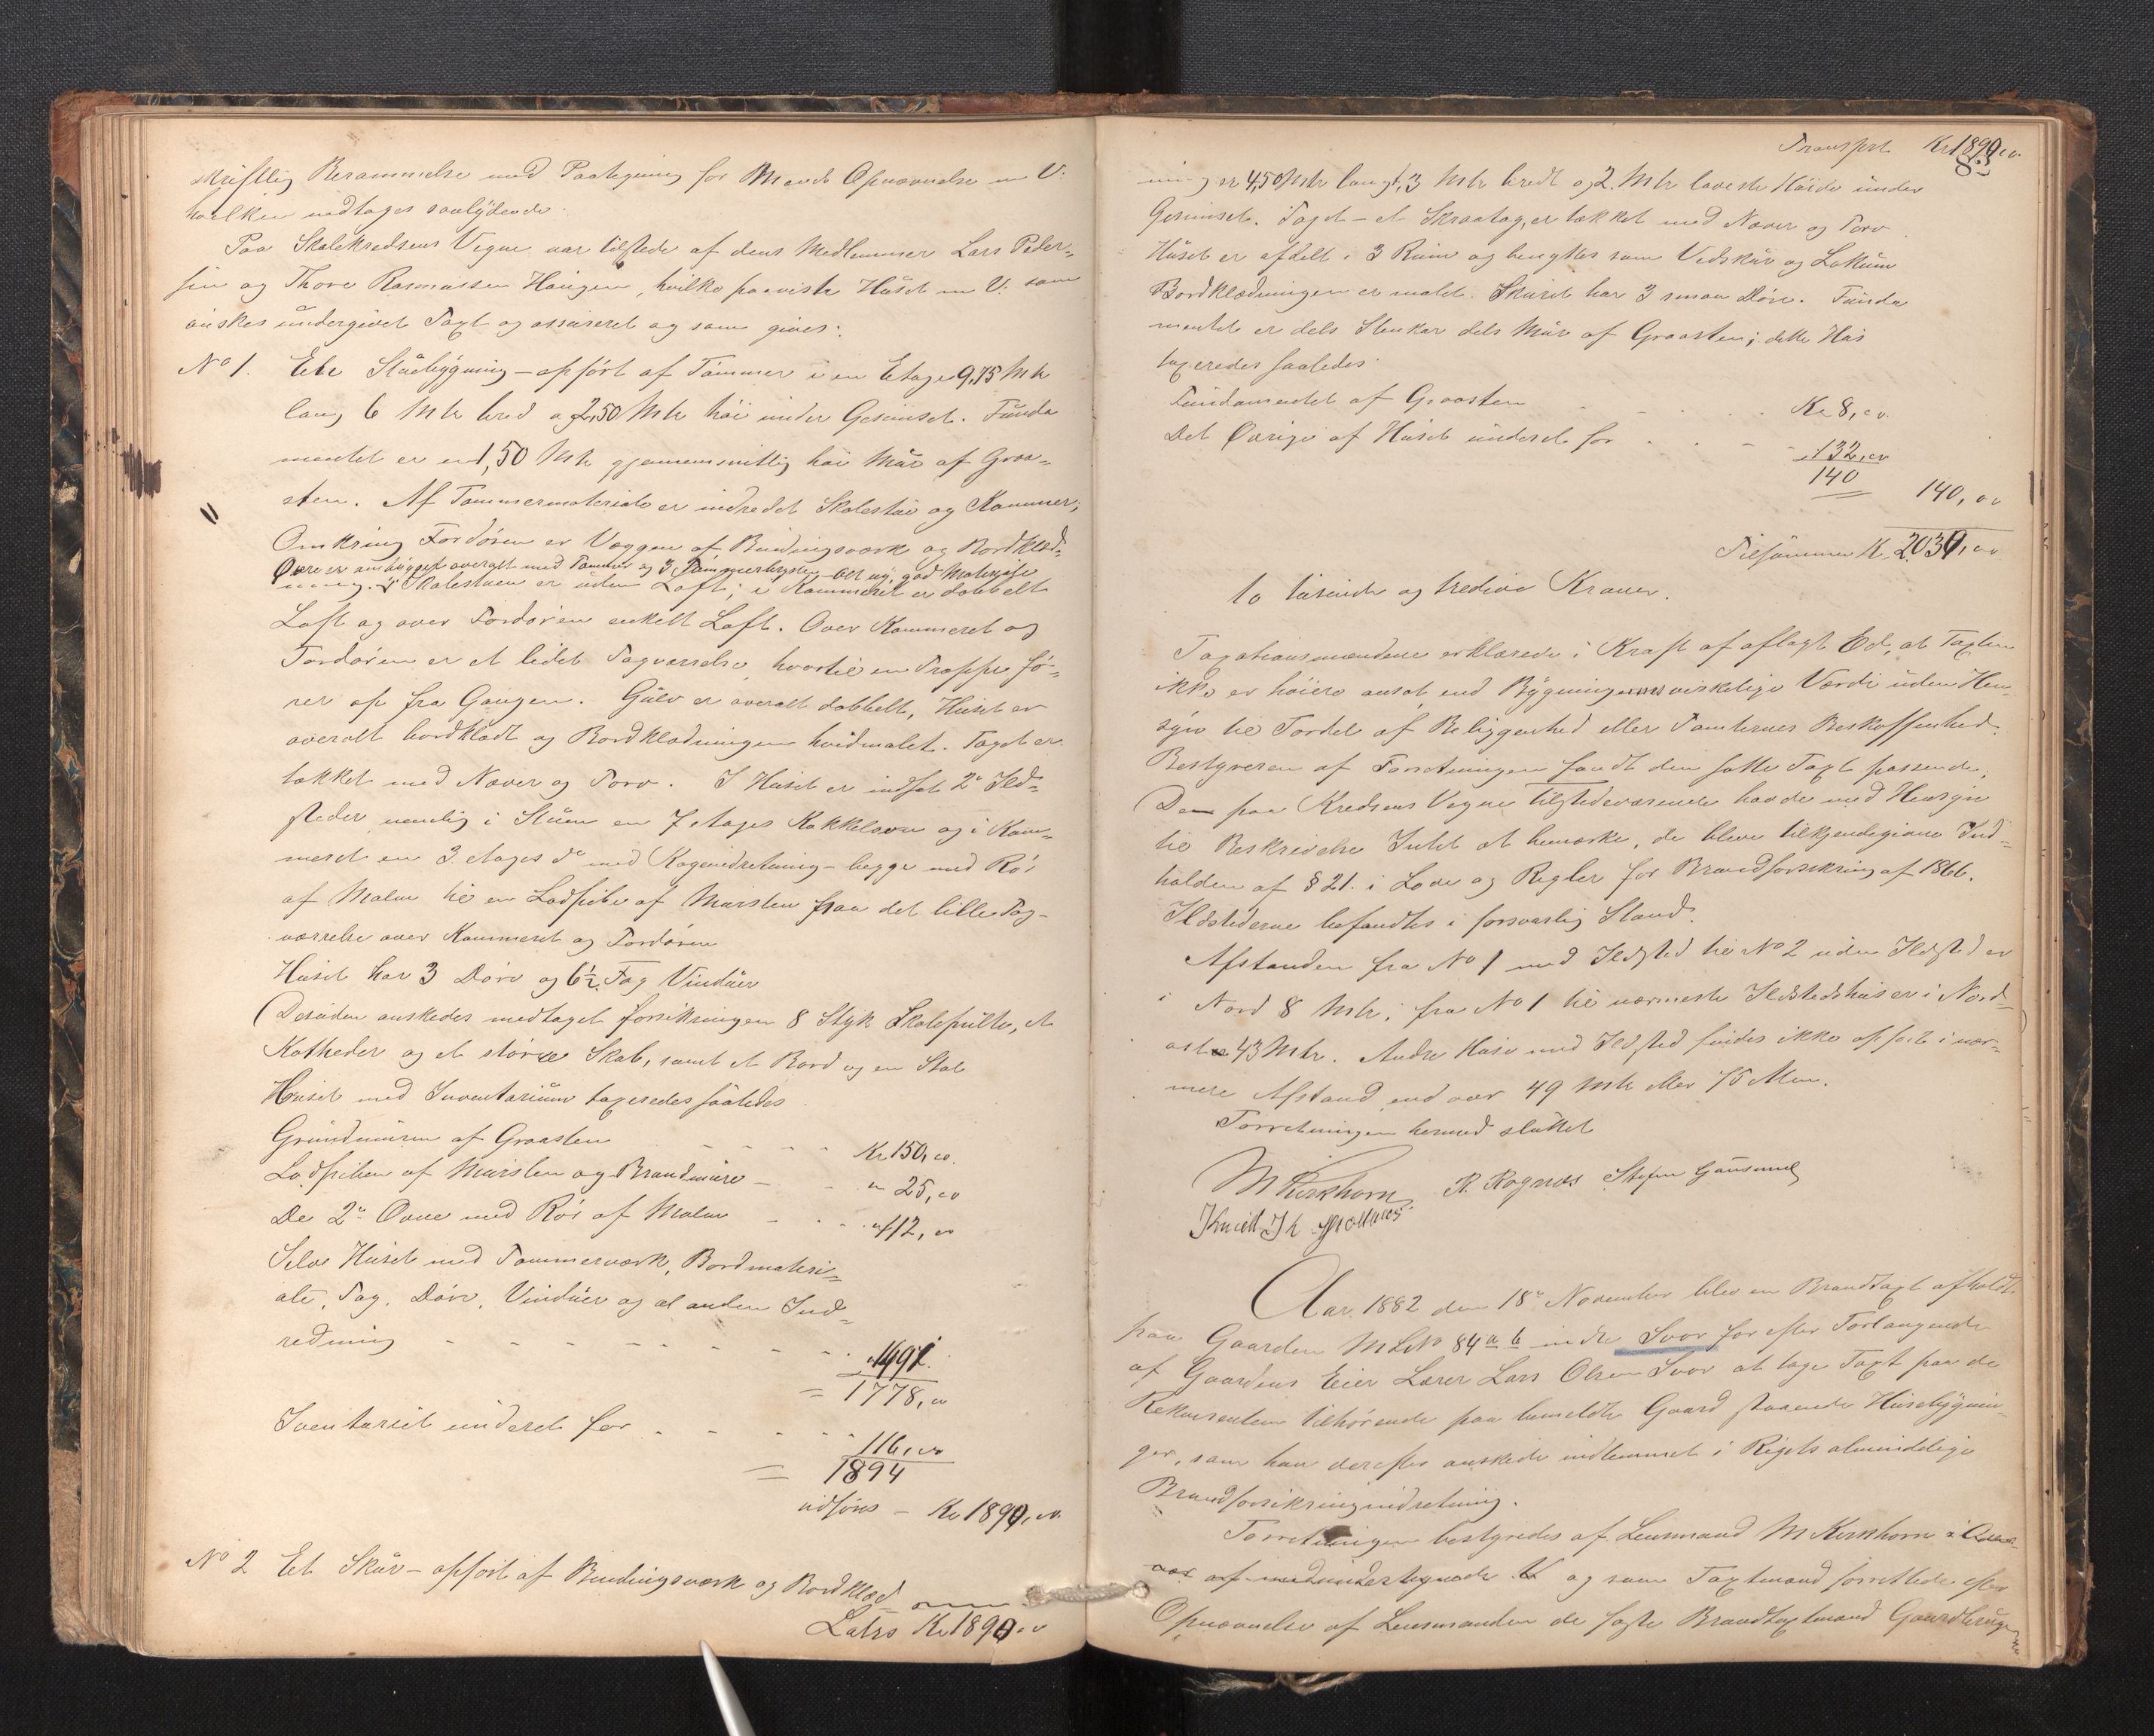 skriftlig Berammelse med Paategning for Mænds Opnævnelse
hvilken indtages saalydende.
Paa Skolekredsens Vegne var tilstede af dens Medlemmer Lars Peder-
sen og Thore Rasmussen Haugen, hvilke paaviste Huset som
ønskes undergivet Taxt og assureret og som gives:
No 1. Ete Stuebygning – opført af Tømmer i en Etage 9,75 Mtr
lang 6 Mtr bred og 2,50 Mtr høi under Gesimset. Funda
mentet er en 1,50 Mtr gjennemsnitlig høi Mur af Graa-
sten. Af Tømmermateriale er indredet Skolestue og Kammer;
Omkring Fordøren er Væggen af Bindingsværk og Bordklæd-
ning. I Skolestuen er uden Loft; i Kammeret er dobbelt
Loft og over Fordøren enkelt Loft. Over Kammeret og
Fordøren er et lidet Tagværrelse, hvortil en Trappe fø-
rer op fra Gangen. Gulv er overalt dobbelt, Huset er
overalt bordklædt og Bordklædningen hvidmalet. Taget er
tækket med Næver og Torv. I Huset er indsat 2de Ild-
steder nemlig i Stuen en 7 etages Kakkelovn og i Kam-
meret en 3 etages do med Kogeindretning – begge med Rør
af Malm til en Lodpibe af Mursten fraa det lille Tag-
værrelse over Kammeret og Fordøren
Huset har 3 Døre og 6½ Fag Vinduer
Desuden ønskedes medtaget forsikringen 8 Styk Skolepulte, et
Katheder og et større Skab, samt et Bord og en Stol
Huset med Inventarium taxeredes saaledes
Grundmuren af Graasten - - - - Kr 150,00.
Lodpiben af Mursten og Brandmure - - " 25,00
De 2de Ovne med Rør af Malm - - - " 112,00
Selve Huset med Tømmerværk, Bordmateri-
ale, Tag, Døre, Vinduer og al anden Ind-
redning - - - - - - - 1491.
= 1778,00
Inventariet vurderet for - - - - - 116,00
= 1894
udføres – Kr 1890,00.
No 2 Et Skur – opført af Bindingsværk og Bordklæd
Latrs Kr 1890,00
Transport Kr 1890,00.
83
ning er 4,50 Mtr langt, 3 Mtr bredt og 2 Mtr laveste Høide under
Gesimset. Taget – et Skraatag, er tækket med Næver og Torv.
Huset er afdelt i 3 Rum og benyttes som Vedskur og Lokum
Bordklædningen er malet. Skuret har 3 smaa Døre. Funda
mentet er dels Stenkar dels Mur af Graasten; dette Hus
taxeredes saaledes:
Fundamentet af Graasten - - - - Kr 8,00.
Det Øvrige af Huset vurderet for - - - - 132,00
140
140,00
Tilsammen K 2030,00
to tusinde og tredive Kroner.
Taxationsmændene erklærede i Kraft af aflagt Ed, at Taxten
ikke er høiere ansat, end Bygningernes virkelige Værdi uden Hen-
syn til Fordel af Beliggenhed eller Tomternes Beskaffenhed.
Bestyreren af Forretningen fandt den satte Taxt passende.
De paa Kredsens Vegne tilstedeværende havde med Hensyn
til Beskrivelse Intet at bemærke, de bleve tilkjendegivne Ind-
holden af § 21. i Love og Regler for Brandforsikring af 1866.
Ildstederne befandtes i forsvarlig Stand.
Afstanden fra No 1 med Ildsted til No 2 uden Ildsted er
i Nord 8 Mtr; fra No 1 til nærmeste Ildstedshus er i Nord-
ost 43 Mtr. Andre Huse med Ildsted findes ikke opført i nær-
mere Afstand end over 49 Mtr eller 75 Alen.
Forretningen hermed sluttet
M Kirkhorn R. Rognæs
Aar 1882 den 18de November blev en Brandtaxt afholdt
paa Gaarden MLNo 84 a b indre Svor for efter Forlangende
af Gaardens Eier Lærer Lars Olsen Svor at tage Taxt paa de
Rekvirenten tilhørende paa bemeldte Gaard staaende Husebygnin-
ger, som han derefter ønskede indlemmet i Rigets almindelige
Brandforsikringsindretning.
Forretningen bestyredes af Lensmand M Kirkhorn
og som Taxtmænd forrettede efter
Opnævnelse af Lensmanden de faste Brandtaxtmænd Gaardbruger